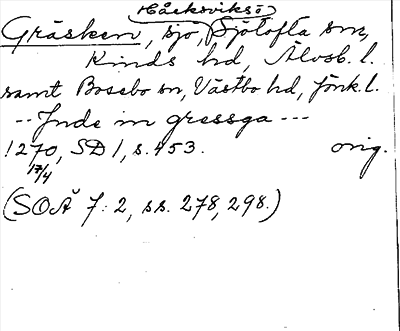 Håcksviksö
Gräsken, sjö, Sjötofta sn,
Kinds hd, Älvsb. l.
samt Bosebo sn, Västbo hd, Jönk. l.
-- Inde in gressga ---
1270, SD 1, s. 453. orig.
17/4
(SOÄ 7:2, ss. 278, 298.)